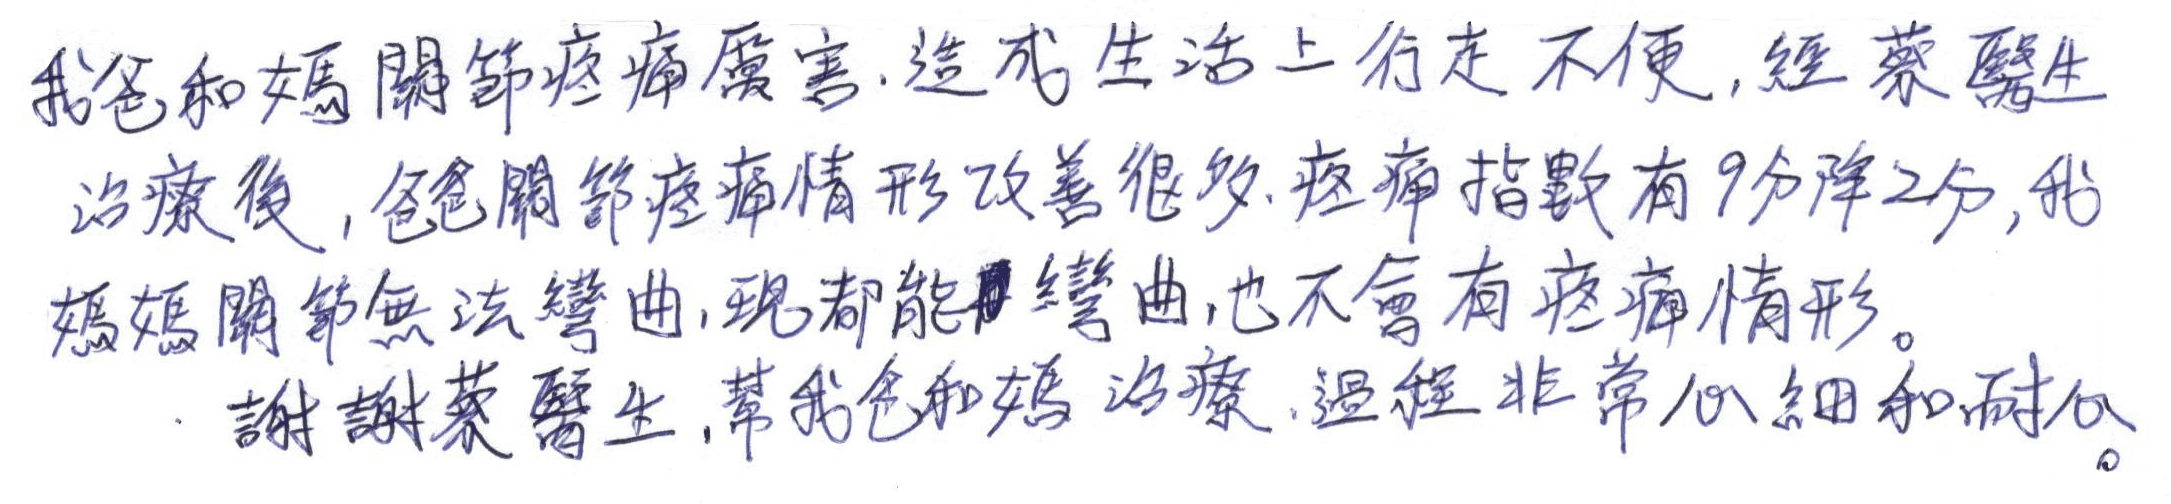 我爸和媽關節疼痛厲害,造成生活上行走不便,經蔡醫生
治療後,爸爸關節疼痛情形改善很多,疼痛指數有9分降2分,我
媽媽關節無法彎曲,現都能彎曲,也不會有疼痛情形。
謝謝蔡醫生,幫我爸和媽治療,過程非常心細和耐心。